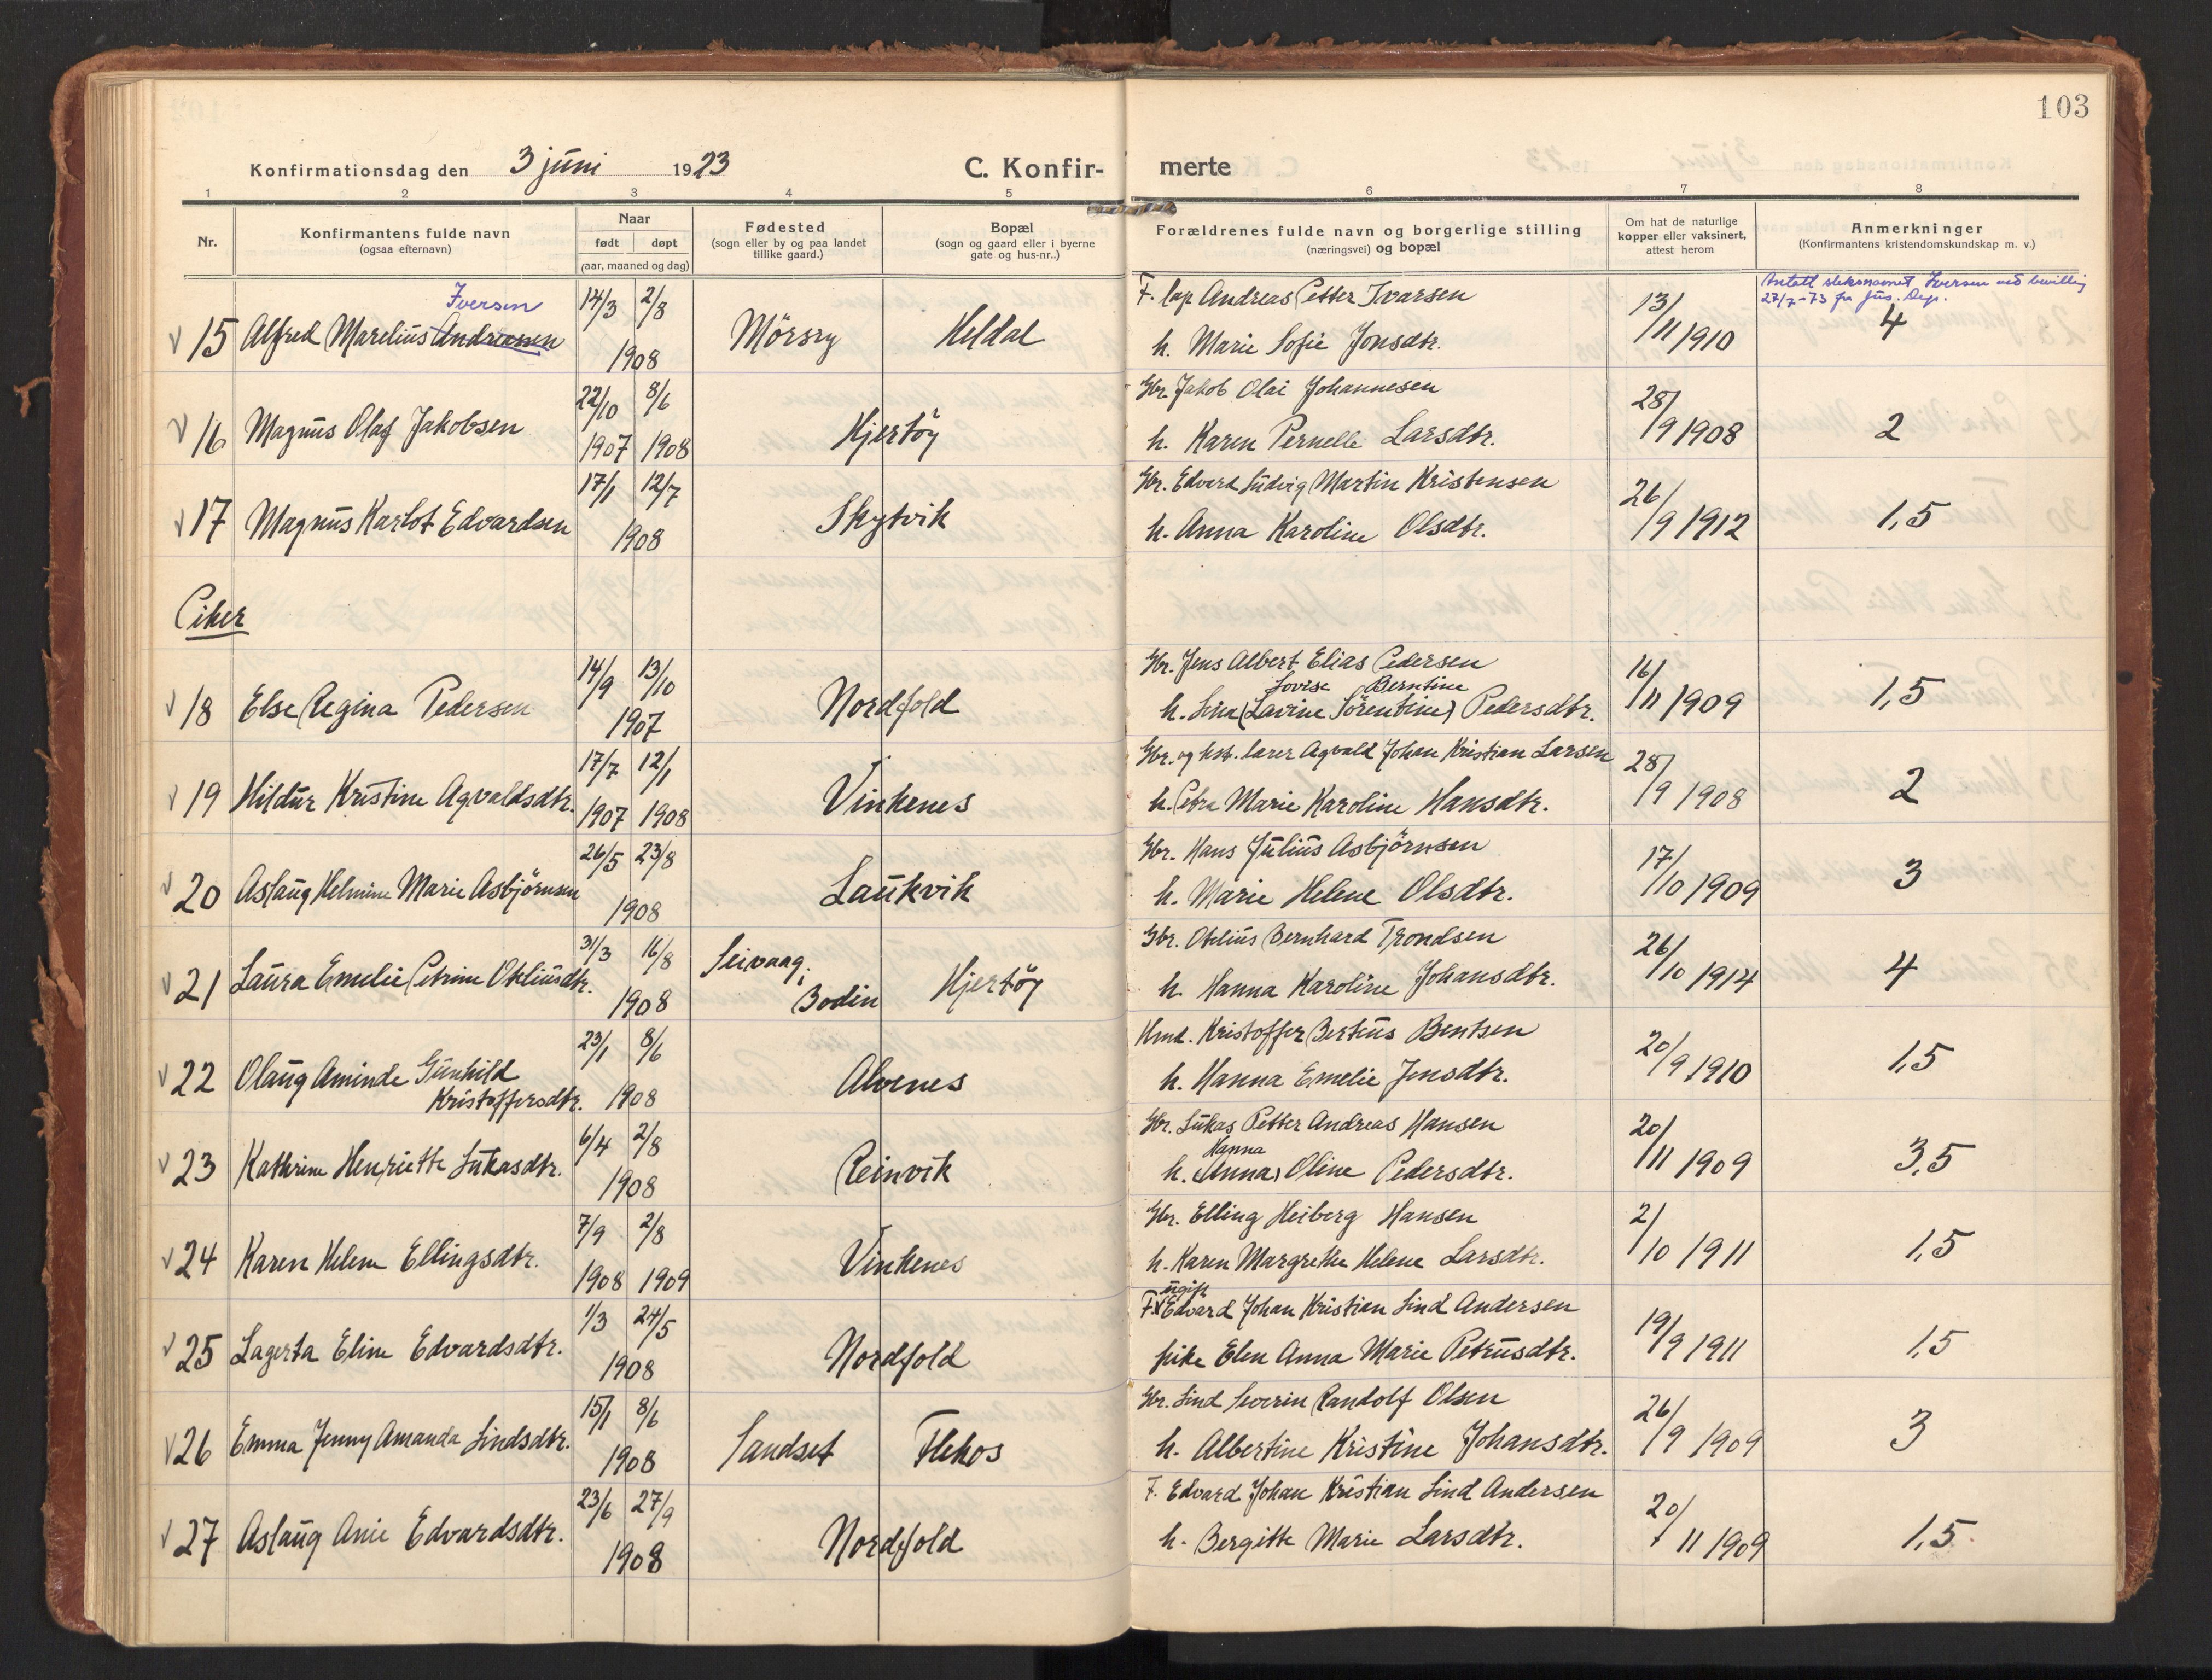 103
Konfirmationsdag den 3 juni 1923
C. Konfir-
merte
1 2 3 4 5 6 7 8
Nr.
Konfirmantens fulde navn
(ogsaa efternavn)
Naar
født døpt
(aar, maaned og dag)
Fødested
(sogn eller by og paa landet
tillike gaard.)
Bopæl
(sogn og gaard eller i byerne
gate og hus-nr..)
Forældrenes fulde navn og borgerlige stilling
(næringsvei) og bopæl
Om hat de naturlige
kopper eller vaksinert,
attest herom
Anmerkninger
(Konfirmantens kristendomskundskap m. v.)
Iversen 14/3 2/8 F. lap Andreas Petter Ivarsen 13/ Antatt slektsnavnet Iversen ved bevilling
27/7-73 fra Jus. Dep.
15 Alfred Marelius Andreassen 1908 Mörsry Heldal h. Marie Sofie Jonsdtr. /11 1910 4
22/10 8/6 Gbr. Jakob Olai Johannesen 28/
16 Magnus Olaf Jakobsen 1907 1908 Hjertöy h. Karen Pernelle Larsdtr. /9 1908 2
17/1 12/7 Gbr. Edvard Ludvig Martin Kristensen 26/
17 Magnus Karlot Edvardsen 1908 Skytvik h. Anna Karoline Olsdtr. /9 1912 1,5
Piker
14/9 13/10 Gbr. Jens Albert Elias Pedersen 16/
Lovise Berntine
18 Else Regina Pedersen 1907 Nordfold h. Lina (Lavine Sörentine) Pedersdtr. /11 1909 1,5
17/7 12/1 Gbr. og hst. lærer Agvald Johan Kristian Larsen 28/
19 Hildur Kristine Agvaldsdtr. 1907 1908 Vinkenes h. Petra Marie Karoline Hansdtr. /9 1908 2
26/5 23/8 Gbr. Hans Julius Asbjörnsen 17/
20 Aslaug Helmine Marie Asbjörnsen 1908 Laukvik h. Marie Helene Olsdtr. /10 1909 3
31/3 16/8 Seivaag, Gbr. Otelius Bernhard Trondsen 26/
21 Laura Emelie Petrine Oteliusdtr. 1908 Bodin Hjertöy h. Hanna Karoline Johansdtr. /10 1914 4
23/1 8/6 Hmd. Kristoffer Berteus Bentsen 20/
22 Olaug Aminde Gunhild
Kristoffersdtr. 1908 Alvenes h. Hanna Emelie Jensdtr. /9 1910 1,5
6/4 2/8 Gbr. Lukas Petter Andreas Hansen 20/
Hanna
23 Kathrine Henriette Lukasdtr. 1908 Reinvik h. (Anna) Oline Pedersdtr. /11 1909 3,5
7/9 2/8 Gbr. Elling Heiberg Hansen 2/
24 Karen Helene Ellingsdtr. 1908 1909 Vinkenes h. Karen Margrethe Helene Larsdtr. /10 1911 1,5
ugift
1/3 24/5 F. Edvard Johan Kristian Lind Andersen 19/
25 Lagerta Eline Edvardsdtr. 1908 Nordfold pike Elen Anna Marie Petrusdtr. /9 1911 1,5
15/1 8/6 Gbr. Lind Severin Randolf Olsen 26/
26 Emma Jenny Amanda Lindsdtr. 1908 Sandset Flekos h. Albertine Kristine Johansdtr. /9 1909 3
23/6 27/9 F. Edvard Johan Kristian Lind Andersen 20/
27 Aslaug Anie Edvardsdtr. 1908 Nordfold h. Bergitte Marie Larsdtr. /11 1909 1,5